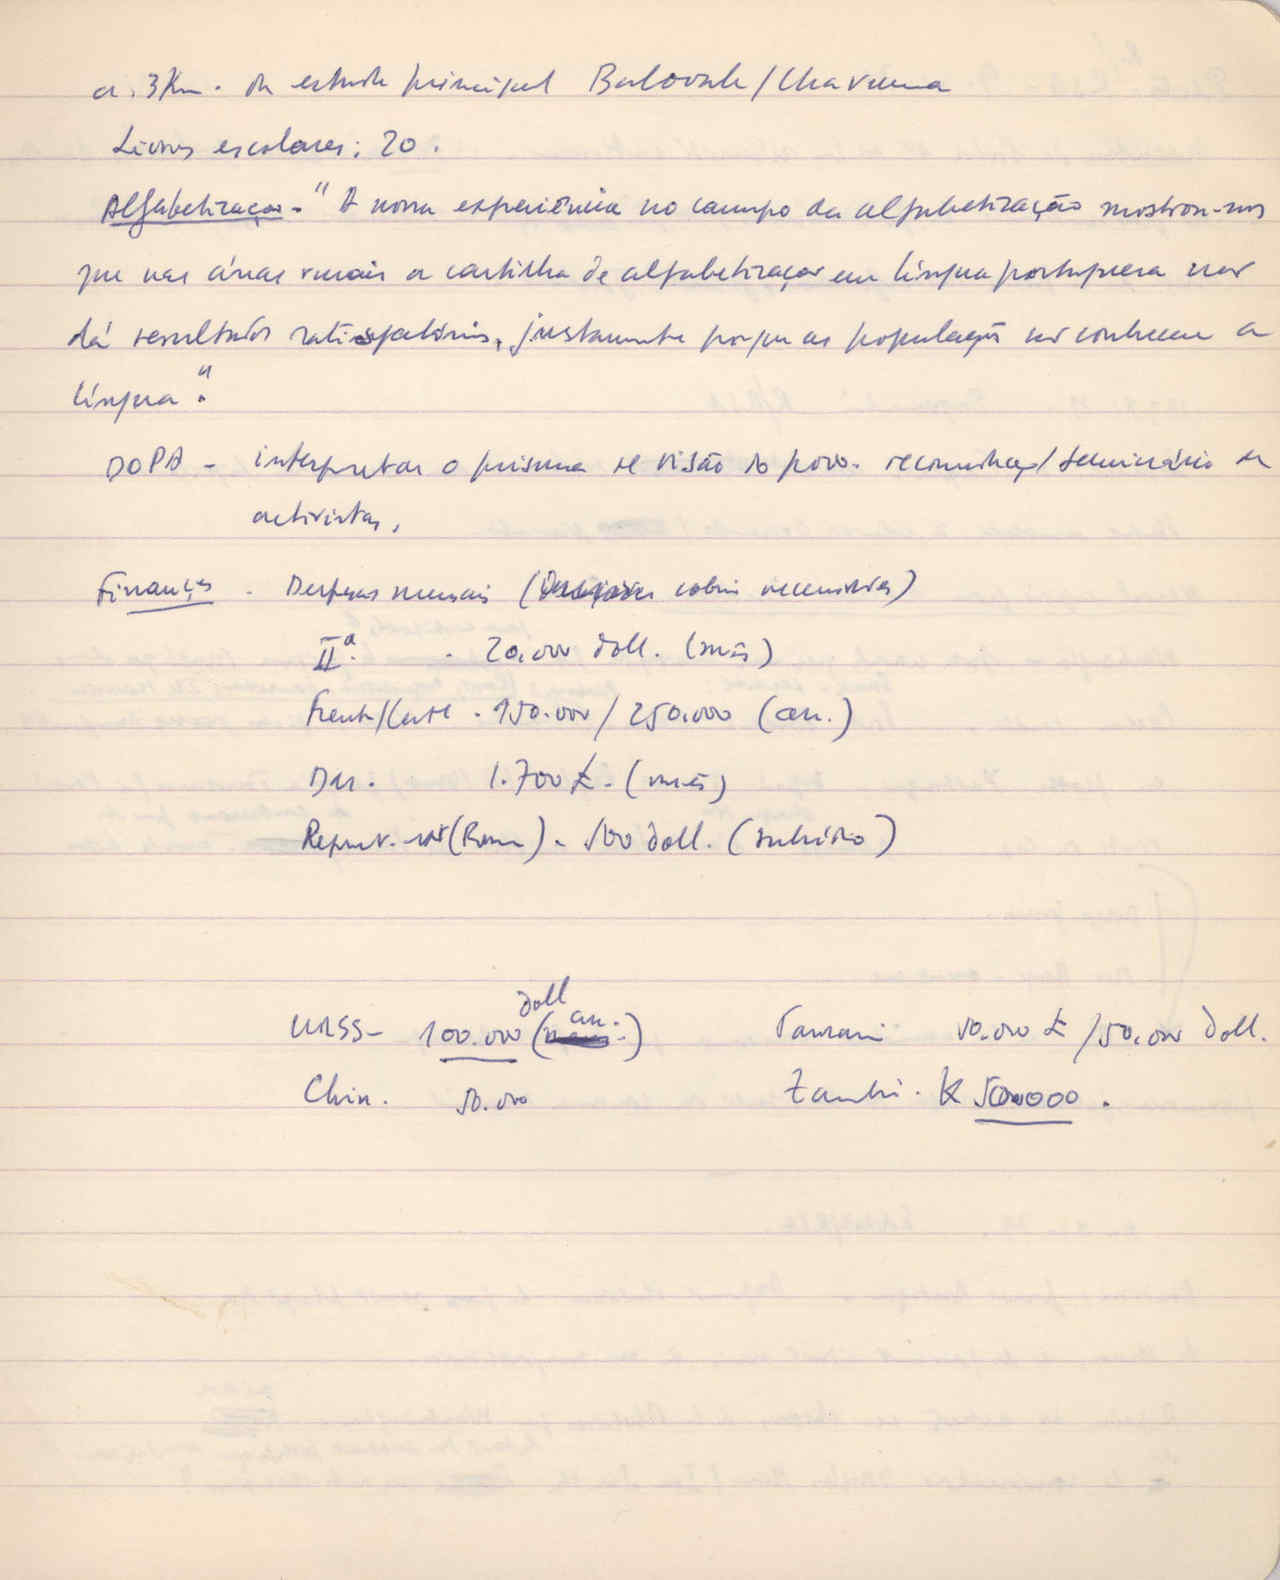 a 3 Km. da estrada principal Balovale/Chavuma
Livros escolares: 20.
Alfabetização - "A nossa experiência no campo da alfabetização mostrou-nos
que nas áreas rurais a cartilha de alfabetização em língua portuguesa não
dá resultados satisfatórios, justamente porque as populações não conhecem a
língua".
DOPA - interpretar o prisma de visão do povo. reconstrução/seminário de
activistas.
Finanças - Despesas mensais ( cobrir necessidades)
IIª. - 20.000 doll. (mês)
Frente/Leste - 150.000/250.000 (an.)
Dar. 1.700 £. (mês)
Repres. (Roma) - 500 doll. (subsídio)
doll
URSS - 100.000 (an.) Tanzani 50.000 £/50.000 doll.
Chin. 50.000 Zambi. K 500000.